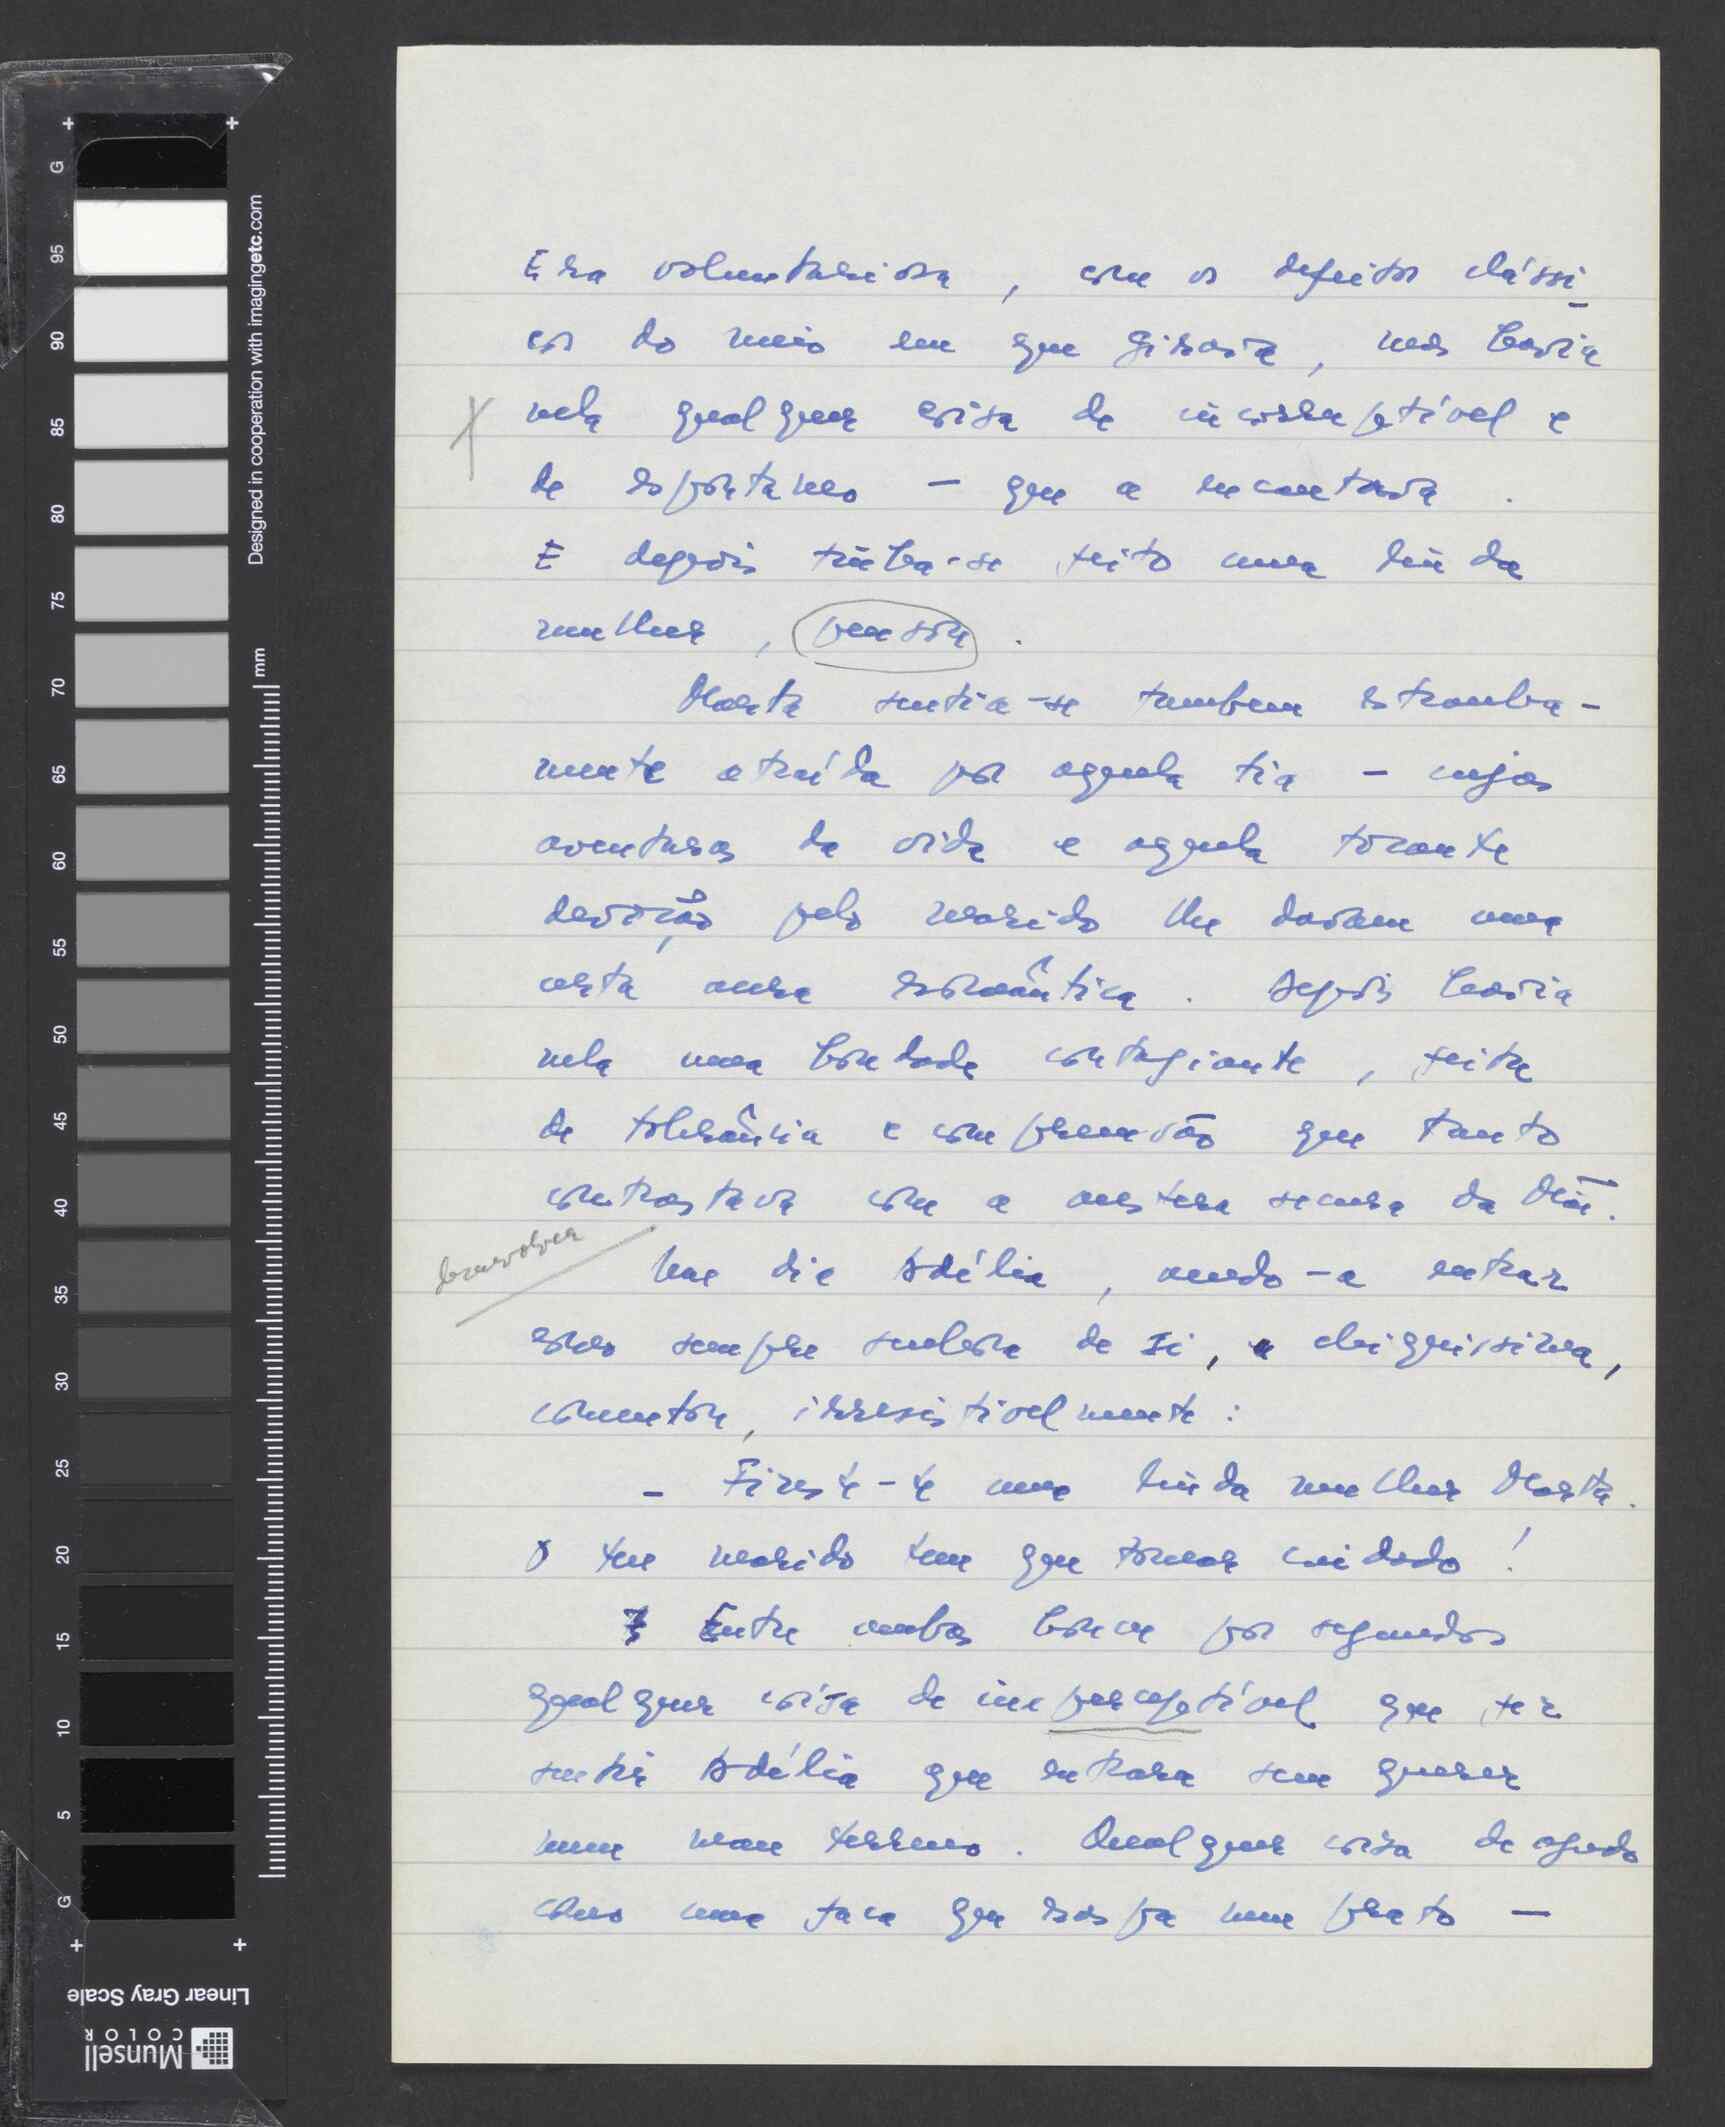 Era voluntariosa, com os defeitos clássi-
cos do meio em que girava, mas havia
nela qualquer coisa de incorruptível e
de espontaneo – que a encantava.
E depois tinha-se feito uma linda
mulher, pensou.
Marta sentia-se tambem estranha-
mente atraída por aquela tia – cujas
aventuras da vida e aquela tocante
devoção pelo marido lhe davam uma
certa aura romântica. Depois havia
nela uma bondade contagiante, feita
de tolerância e compreensão que tanto
contrastava com a austera secura da Mãe.
Um dia Adélia, vendo-a entrar
como sempre senhora de si, chiquissima,
comentou, irresistivelmente:
– Fizeste-te uma linda mulher Marta.
O teu marido tem que tomar cuidado!
Entre ambas houve por segundos
qualquer coisa de imperceptível que fez
sentir Adélia que entrara sem querer
num mau terreno. Qualquer coisa de agudo
como uma faca que raspa num prato –
Designed in cooperation with imagingetc.com
mm
G 95 90 85 80 75 70 65 60 55 50 45 40 35 30 25 20 15 10 5 G
Linear Gray Scale
Munsell
COLOR